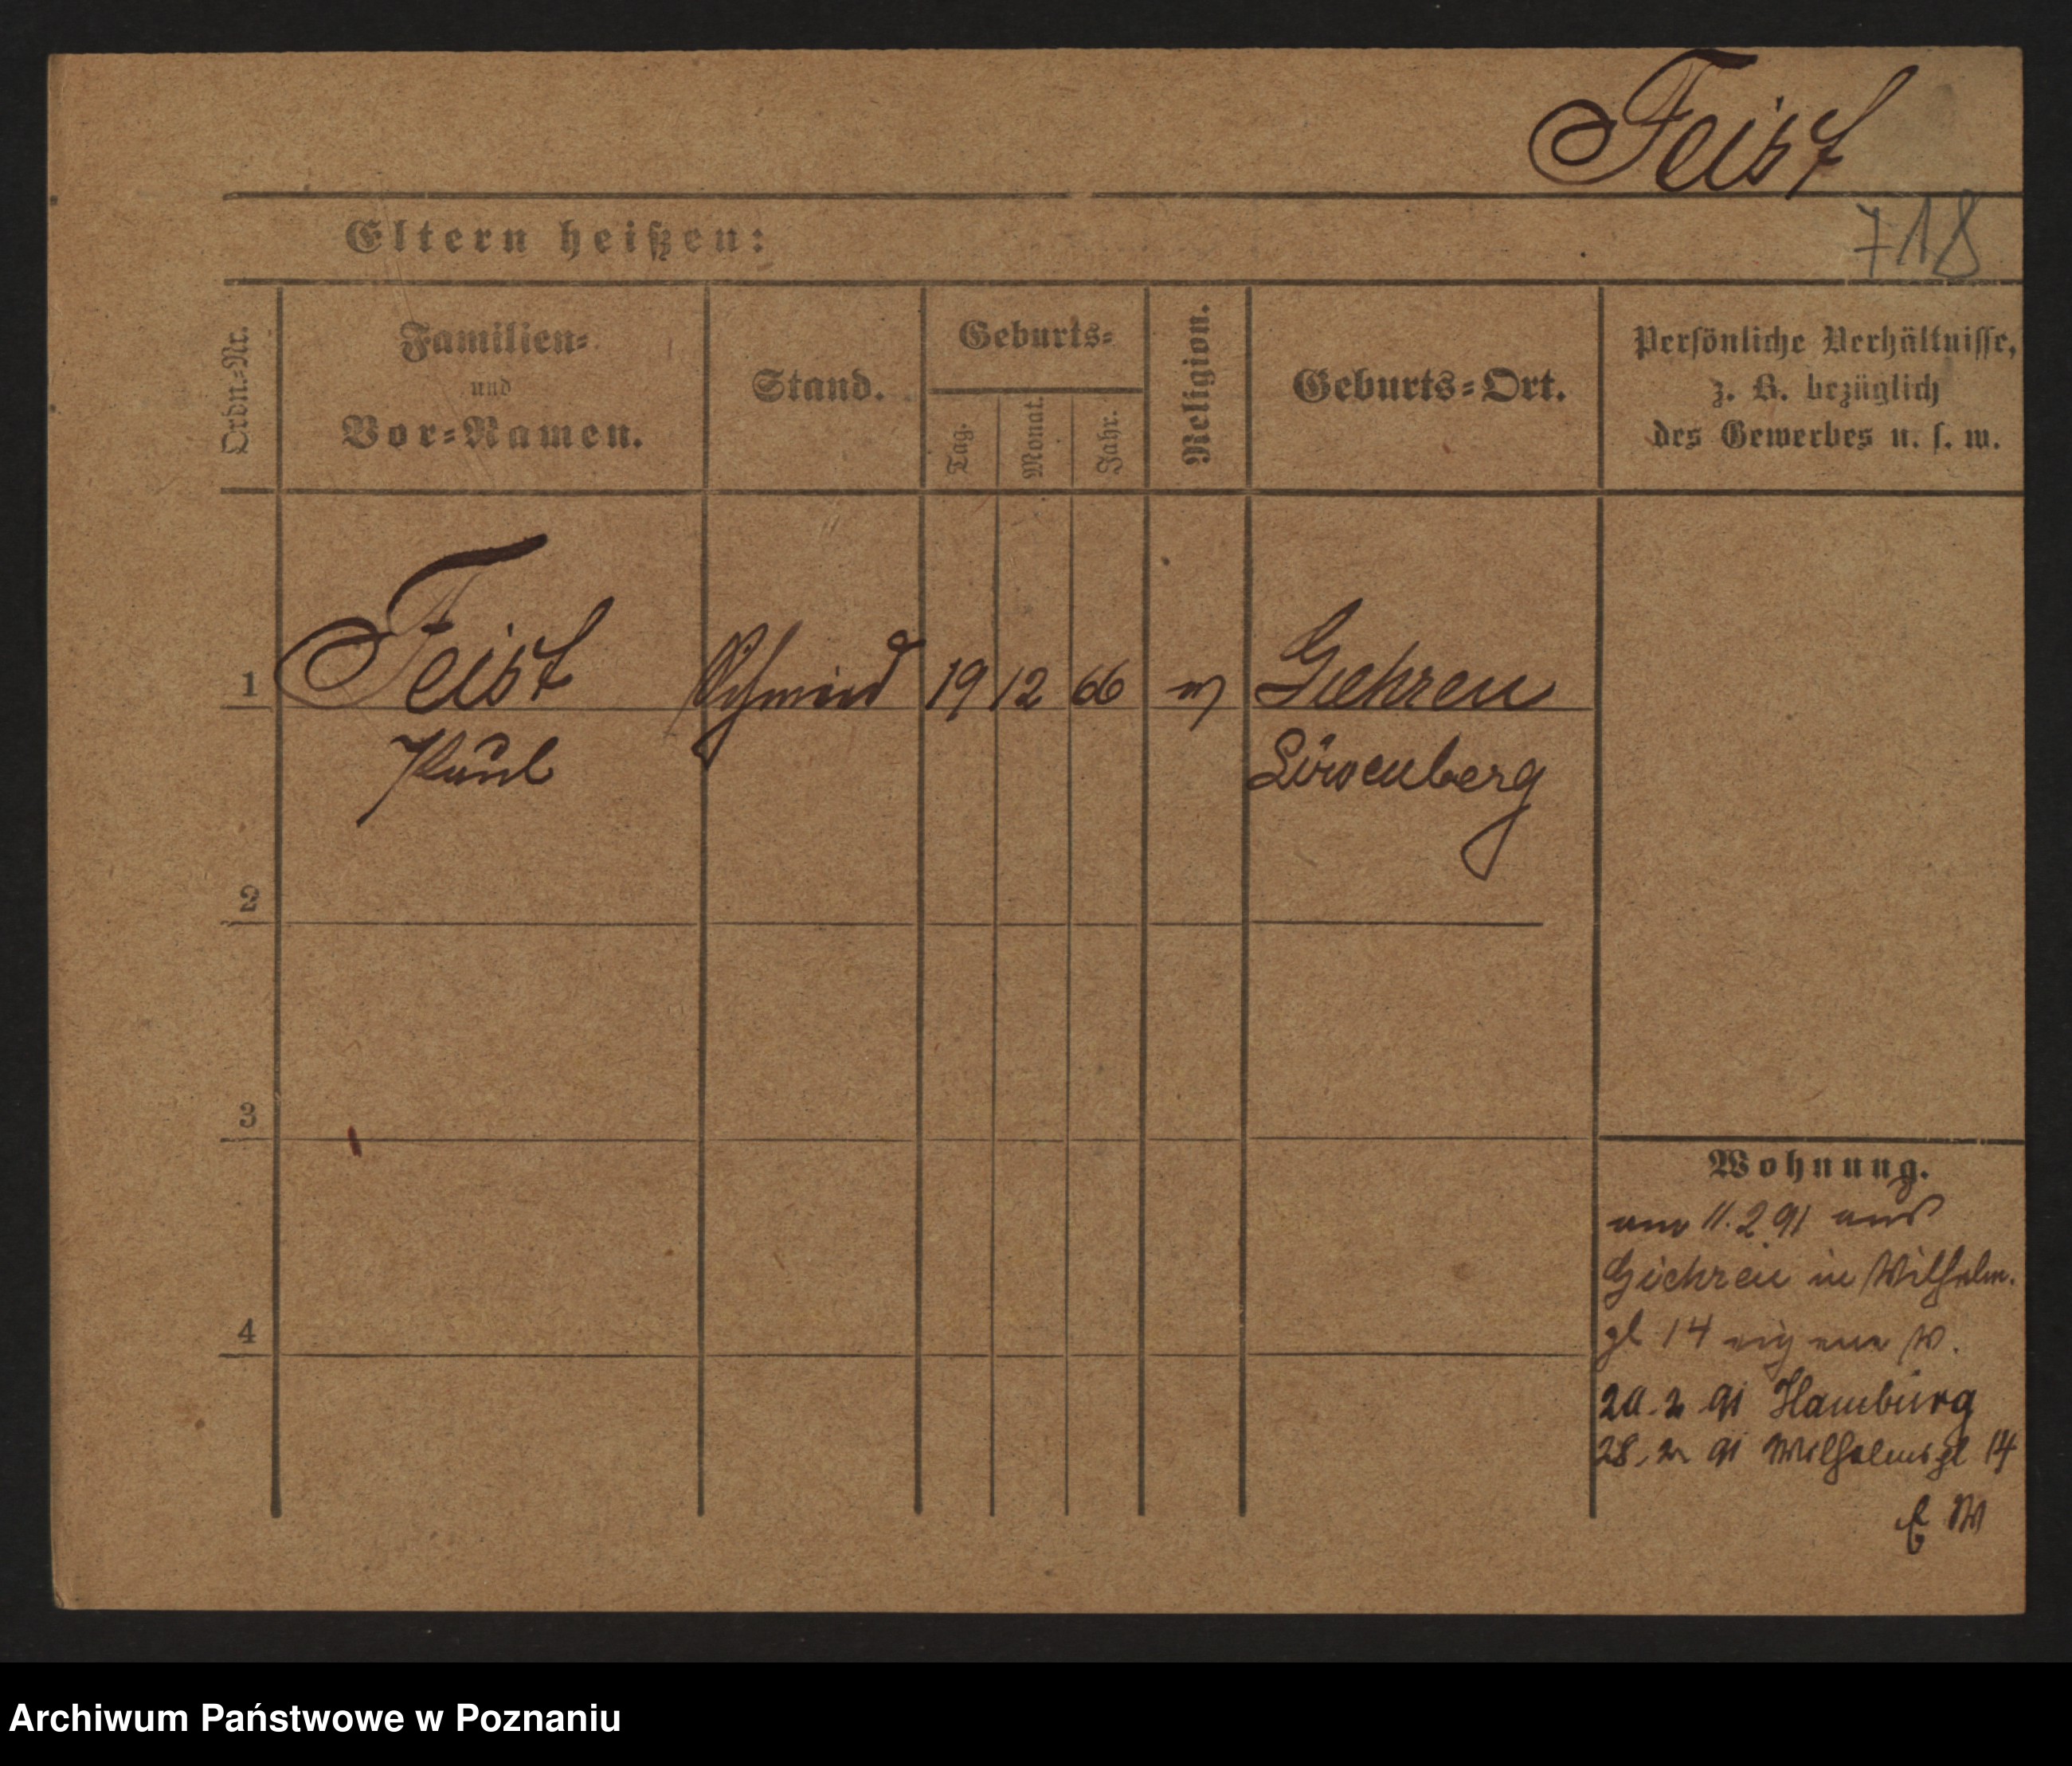 Feist
718
Eltern heißen:
Ordn.-Nr.
Familien-
und
Vor-Namen.
Stand.
Geburts-
Tag.
Monat.
Jahr.
Religion.
Geburts-Ort.
Persönliche Verhältnisse,
z. B. bezüglich
des Gewerbes u. s. w.
1 Feist Schmied 19 12 66 Giehren
Paul Löwenberg
2
3
4
Wohnung.
11.2.91 aus
Giehren in Wilhelm.
pl 14 eigene W.
20.2 91 Hamburg
28.2 91 Wilhelmspl 14
E W
Archiwum Państwowe w Poznaniu